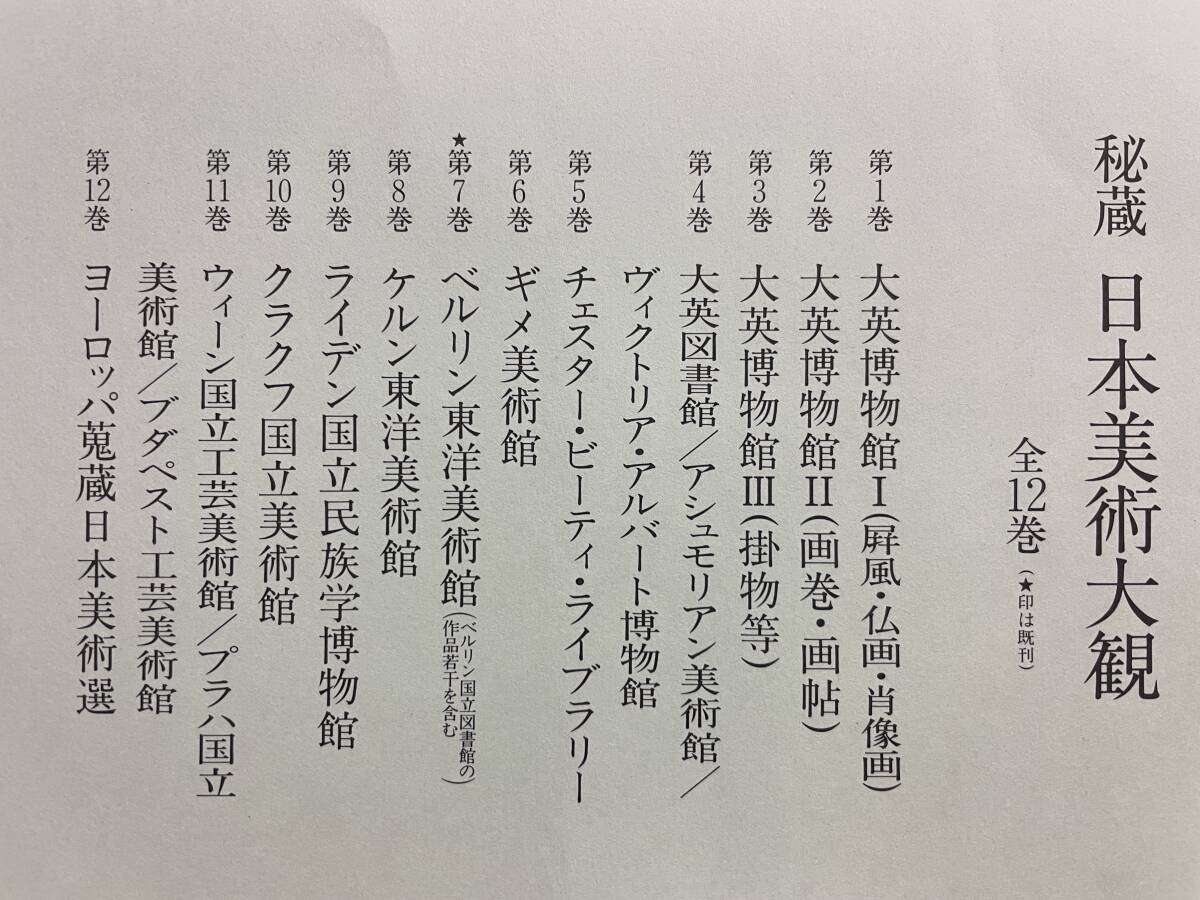 秘蔵 日本美術大観
全12巻（★印は既刊）
第1巻 大英博物館Ⅰ（屛風・仏画・肖像画）
第2巻 大英博物館Ⅱ（画巻・画帖）
第3巻 大英博物館Ⅲ（掛物等）
第4巻 大英図書館／アシュモリアン美術館／
ヴィクトリア・アルバート博物館
第5巻 チェスター・ビーティ・ライブラリー
第6巻 ギメ美術館
★第7巻 ベルリン東洋美術館（ベルリン国立図書館の作品若干を含む）
第8巻 ケルン東洋美術館
第9巻 ライデン国立民族学博物館
第10巻 クラクフ国立美術館
第11巻 ウィーン国立工芸美術館／プラハ国立
美術館／ブダペスト工芸美術館
第12巻 ヨーロッパ蒐蔵日本美術選